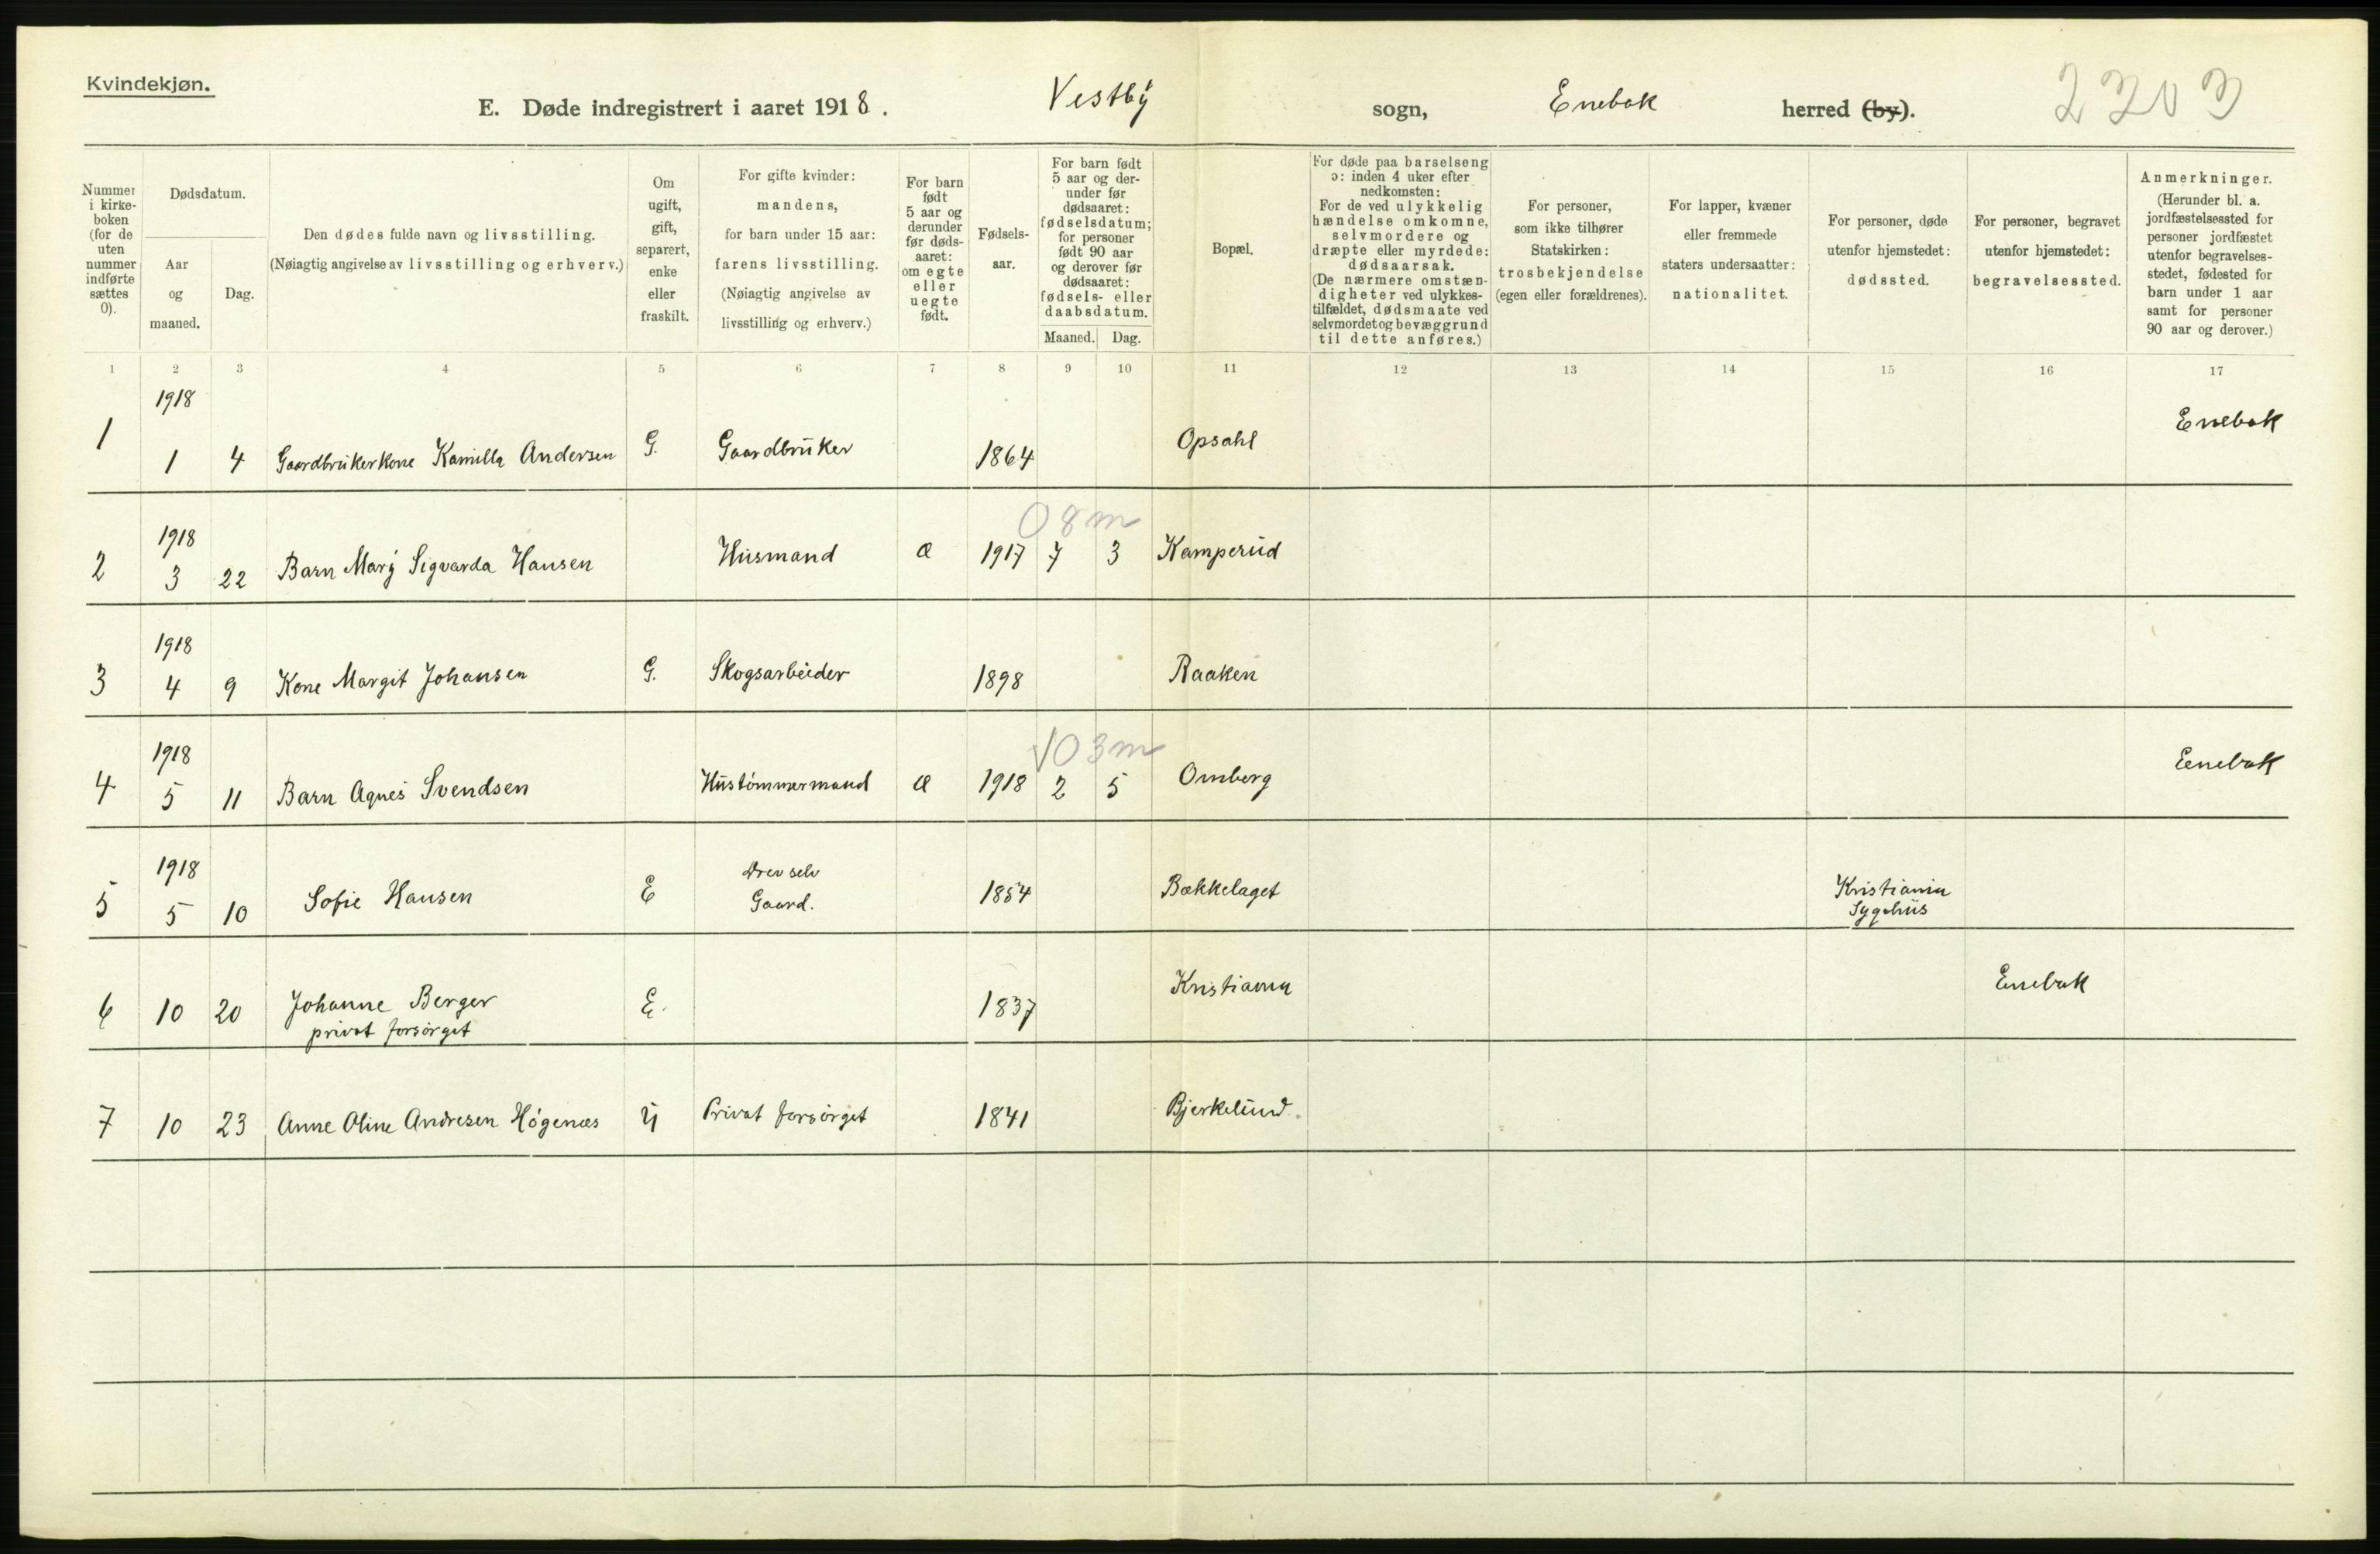 Kvindekjøn.
E. Døde indregistrert i aaret 1918. Vestby sogn, Enebak herred (by). 2303
Nummer i kirkeboken (for de uten nummer indførte sættes 0).
Dødsdatum.
Aar og maaned.
Dag.
Den dødes fulde navn og livsstilling.
(Nøiagtig angivelse av livsstilling og erhverv.)
Om ugift, gift, separert, enke eller fraskilt.
For gifte kvinder: mandens, for barn under 15 aar: farens livsstilling. (Nøiagtig angivelse av livsstilling og erhverv.)
For barn født 5 aar og derunder før dødsaaret: om egte eller uegte født.
Fødselsaar.
For barn født 5 aar og derunder før dødsaaret: fødselsdatum; for personer født 90 aar og derover før dødsaaret: fødsels- eller daabsdatum.
Maaned. Dag.
Bopæl.
For døde paa barselseng ɔ: inden 4 uker efter nedkomsten: For de ved ulykkelig hændelse omkomne, selvmordere og dræpte eller myrdede: dødsaarsak. (De nærmere omstændigheter ved ulykkestilfældet, dødsmaate ved selvmordet og bevæggrund til dette anføres.)
For personer, som ikke tilhører Statskirken: trosbekjendelse (egen eller forældrenes).
For lapper, kvæner eller fremmede staters undersaatter: nationalitet.
For personer, døde utenfor hjemstedet: dødssted.
For personer, begravet utenfor hjemstedet: begravelsessted.
Anmerkninger. (Herunder bl. a. jordfæstelsessted for personer jordfæstet utenfor begravelsesstedet, fødested for barn under 1 aar samt for personer 90 aar og derover.)
1 2 3 4 5 6 7 8 9 10 11 12 13 14 15 16 17
1918
1 1 4 Gaardbrukerkone Kamilla Andersen G. Gaardbruker 1864 Opsahl Enebak
1918 08m
2 3 22 Barn Mary Sigvarda Hansen Husmand Æ 1917 7 3 Kamperud
1918
3 4 9 Kone Margit Johansen G. Skogsarbeider 1898 Raaken
1918 √03m
4 5 11 Barn Agnes Svendsen Hustømmermand Æ 1918 2 5 Omberg Enebak
1918 Drev selv
5 5 10 Sofie Hansen E Gaard. 1854 Bækkelaget Kristiania
Sygehus
6 10 20 Johanne Berger E. 1837 Kristiania Enebak
privat forsørget
7 10 23 Anne Oline Andresen Høgenæs U Privat forsørget 1841 Bjerkelund.